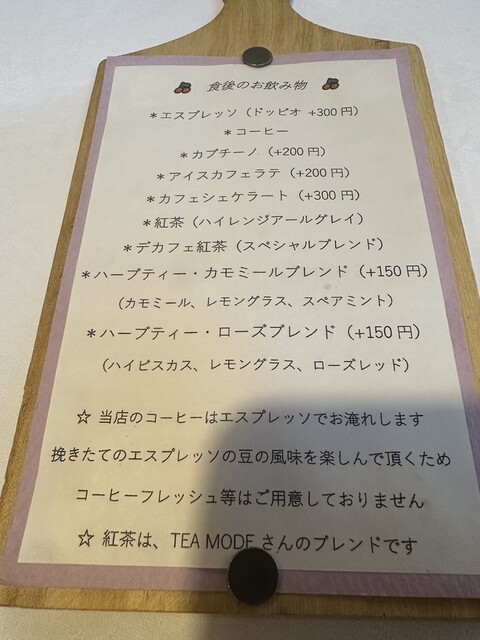 食後のお飲み物
＊エスプレッソ（ドッピオ +300円）
＊コーヒー
＊カプチーノ（+200円）
＊アイスカフェラテ（+200円）
＊カフェシェケラート（+300円）
＊紅茶（ハイレンジアールグレイ）
＊デカフェ紅茶（スペシャルブレンド）
＊ハーブティー・カモミールブレンド（+150円）
（カモミール、レモングラス、スペアミント）
＊ハーブティー・ローズブレンド（+150円）
（ハイビスカス、レモングラス、ローズレッド）
☆ 当店のコーヒーはエスプレッソでお淹れします
挽きたてのエスプレッソの豆の風味を楽しんで頂くため
コーヒーフレッシュ等はご用意しておりません
☆ 紅茶は、TEA MODE さんのブレンドです